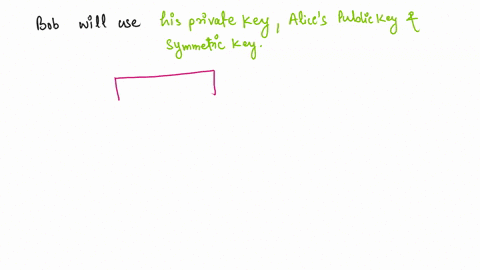 Bob will use his private key, Alice's Public Key &
Symmetric Key.